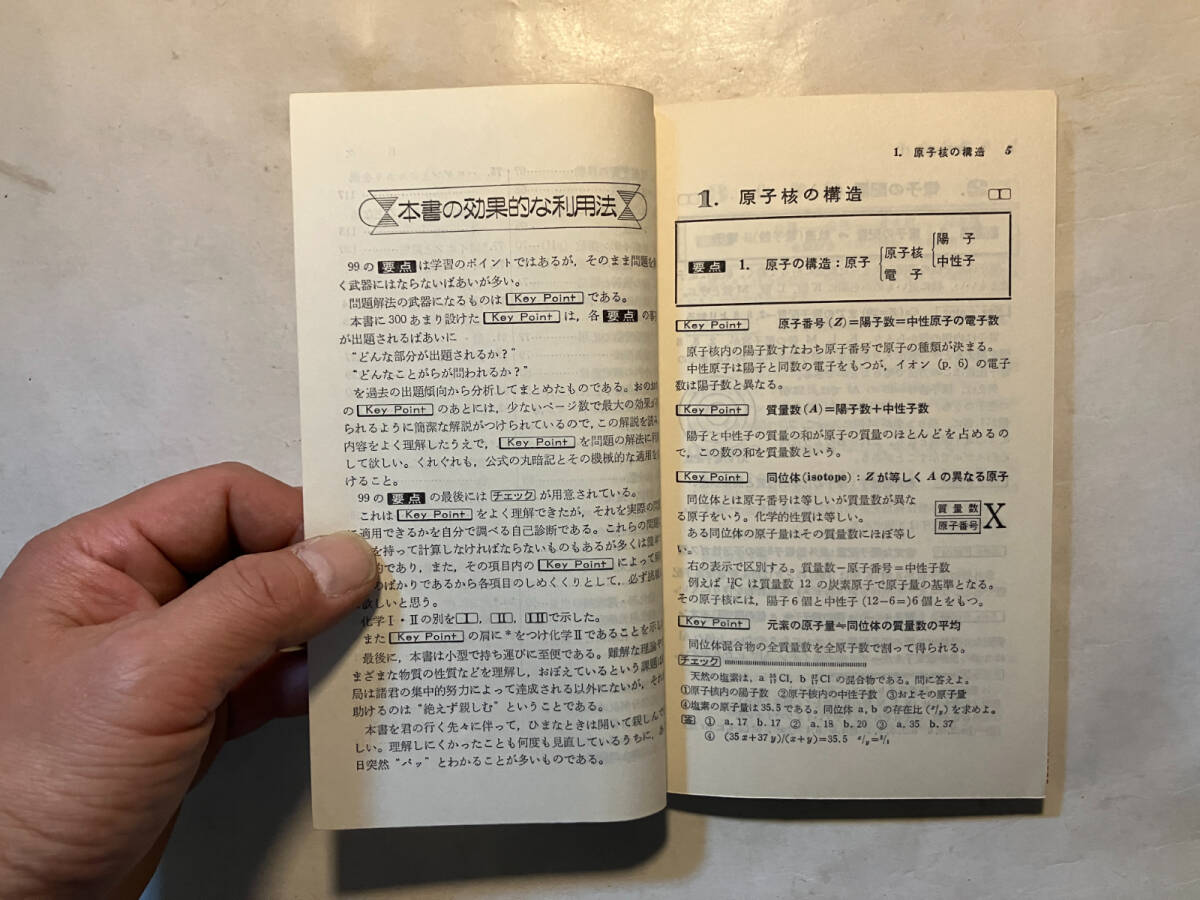 本書の効果的な利用法
99の 要点 は学習のポイントではあるが，そのまま問題を
く武器にはならないばあいが多い。
問題解法の武器になるものは Key Point である。
本書に300あまり設けた Key Point は，各 要点 の
が出題されるばあいに
“どんな部分が出題されるか？”
“どんなことがらが問われるか？”
を過去の出題傾向から分析してまとめたものである。おのお
の Key Point のあとには，少ないページ数で最大の効果が
られるように簡潔な解説がつけられているので，この解説を読
内容をよく理解したうえで， Key Point を問題の解法に
して欲しい。くれぐれも，公式の丸暗記とその機械的な適用を
けること。
99の 要点 の最後には チェック が用意されている。
これは Key Point をよく理解できたが，それを実際の問
適用できるかを自分で調べる自己診断である。これらの問
を持って計算しなければならないものもあるが多くは
であり，また，その項目内の Key Point によって
のばかりであるから各項目のしめくくりとして，必ず
欲しいと思う。
化学Ⅰ・Ⅱの別を Ⅰ ， Ⅱ ， ⅠⅡ で示した。
また Key Point の肩に＊をつけ化学Ⅱであることを示
最後に，本書は小型で持ち運びに至便である。難解な理論や
まざまな物質の性質などを理解し，おぼえているという課題
局は諸君の集中的努力によって達成される以外にないが，それ
助けるのは“絶えず親しむ”ということである。
本書を君の行く先々に伴って，ひまなときは開いて親しんで
しい。理解しにくかったことも何度も見直しているうちに，あ
日突然“パッ”とわかることが多いものである。
1. 原子核の構造 5
1. 原子核の構造
要点 1. 原子の構造：原子 原子核 陽子
中性子
電子
Key Point 原子番号(Z)＝陽子数＝中性原子の電子数
原子核内の陽子数すなわち原子番号で原子の種類が決まる。
中性原子は陽子と同数の電子をもつが，イオン(p. 6)の電子
数は陽子数と異なる。
Key Point 質量数(A)＝陽子数＋中性子数
陽子と中性子の質量の和が原子の質量のほとんどを占めるの
で，この数の和を質量数という。
Key Point 同位体(isotope)：Zが等しくAの異なる原子
同位体とは原子番号は等しいが質量数が異な
る原子をいう。化学的性質は等しい。
質量数
原子番号 X
ある同位体の原子量はその質量数にほぼ等し
い。
右の表示で区別する。質量数－原子番号＝中性子数
例えば ¹²₆C は質量数 12 の炭素原子で原子量の基準となる。
その原子核には，陽子6個と中性子(12－6＝)6個とをもつ。
Key Point 元素の原子量≒同位体の質量数の平均
同位体混合物の全質量数を全原子数で割って得られる。
チェック
天然の塩素は，a ³⁵₁₇Cl，b ³⁷₁₇Cl の混合物である。問に答えよ。
①原子核内の陽子数 ②原子核内の中性子数 ③およその原子量
④塩素の原子量は35.5である。同位体 a, b の存在比(x/y)を求めよ。
答 ① a. 17 b. 17 ② a. 18 b. 20 ③ a. 35 b. 37
④ (35x＋37y)/(x＋y)＝35.5 x/y＝3/1